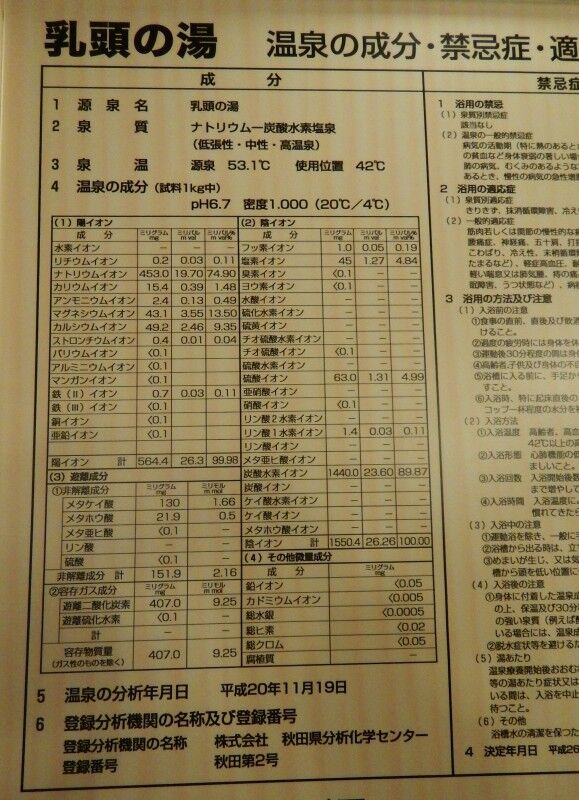 乳頭の湯 温泉の成分・禁忌症・適
成 分
1 源泉名 乳頭の湯
2 泉質 ナトリウム一炭酸水素塩泉
(低張性・中性・高温泉)
3 泉温 源泉 53.1℃ 使用位置 42℃
4 温泉の成分(試料1kg中)
pH6.7 密度1.000(20℃/4℃)
(1)陽イオン
成 分 ミリグラム mg ミリバル m val ミリバル% m val%
水素イオン － － －
リチウムイオン 0.2 0.03 0.11
ナトリウムイオン 453.0 19.70 74.90
カリウムイオン 15.4 0.39 1.48
アンモニウムイオン 2.4 0.13 0.49
マグネシウムイオン 43.1 3.55 13.50
カルシウムイオン 49.2 2.46 9.35
ストロンチウムイオン 0.4 0.01 0.04
バリウムイオン <0.1 － －
アルミニウムイオン <0.1 － －
マンガンイオン <0.1 － －
鉄(Ⅱ)イオン 0.7 0.03 0.11
鉄(Ⅲ)イオン <0.1 － －
銅イオン <0.1 － －
亜鉛イオン <0.1 － －
陽イオン 計 564.4 26.3 99.98
(2)陰イオン
成 分 ミリグラム mg ミリバル m val ミリバル% m val%
フッ素イオン 1.0 0.05 0.19
塩素イオン 45 1.27 4.84
臭素イオン <0.1 － －
ヨウ素イオン <0.1 － －
水酸イオン － － －
硫化水素イオン － － －
硫黄イオン － － －
チオ硫酸水素イオン － － －
チオ硫酸イオン <0.1 － －
硫酸水素イオン － － －
硫酸イオン 63.0 1.31 4.99
亜硝酸イオン － － －
硝酸イオン <0.1 － －
リン酸2水素イオン － － －
リン酸1水素イオン 1.4 0.03 0.11
リン酸イオン － － －
メタ亜ヒ酸イオン － － －
炭酸水素イオン 1440.0 23.60 89.87
炭酸イオン － － －
ケイ酸水素イオン － － －
ケイ酸イオン － － －
メタホウ酸イオン － － －
陰イオン 計 1550.4 26.26 100.00
(3)遊離成分
①非解離成分 ミリグラム mg ミリモル m mol
メタケイ酸 130 1.66
メタホウ酸 21.9 0.5
メタ亜ヒ酸 <0.1 －
リン酸 － －
硫酸 <0.1 －
非解離成分 計 151.9 2.16
②容存ガス成分 ミリグラム mg ミリモル m mol
遊離二酸化炭素 407.0 9.25
遊離硫化水素 <0.1 －
計 － －
容存物質量 407.0 9.25
(ガス性のものを除く)
(4)その他微量成分
成 分 ミリグラム mg
鉛イオン <0.05
カドミウムイオン <0.005
総水銀 <0.0005
総ヒ素 <0.02
総クロム <0.05
腐植質 －
5 温泉の分析年月日 平成20年11月19日
6 登録分析機関の名称及び登録番号
登録分析機関の名称 株式会社 秋田県分析化学センター
登録番号 秋田第2号
禁忌症
1 浴用の禁忌
(1)泉質別禁忌症
該当なし
(2)温泉の一般的禁忌症
病気の活動期(特に熱のあると
の貧血など身体衰弱の著しい場
肺の病気、むくみのあるような
あるとき、慢性の病気の急性増
2 浴用の適応症
(1)泉質別適応症
きりきず、抹消循環障害、冷え
(2)一般的適応症
筋肉若しくは関節の慢性的な痛
腰痛症、神経痛、五十肩、打
こわばり、冷え性、末梢循環
たまるなど)、軽症高血圧、
軽い喘息又は肺気腫、痔の痛
眠障害、うつ状態など)、病
3 浴用の方法及び注意
(1)入浴前の注意
①食事の直前、直後及び飲酒
けること。
②過度の疲労時には身体を休
③運動後30分程度の間は身体
④高齢者、子供及び身体の不
⑤浴槽に入る前に、手足か
すこと。
⑥入浴時、特に起床直後の
コップ一杯程度の水分を
(2)入浴方法
①入浴温度 高齢者、高血
42℃以上の高
②入浴形態 心肺機能の低
ましいこと。
③入浴回数 入浴開始後数
まで増やして
④入浴時間 入浴温度に
慣れてきたら
(3)入浴中の注意
①運動浴を除き、一般に手
②浴槽から出る時は、立
③めまいが生じ、又は気
槽から頭を低い位置に
(4)入浴後の注意
①身体に付着した温泉成
の上、保温及び30分
の強い泉質(例えば酸
いる場合には、温泉成
②脱水症状等を避けるた
(5)湯あたり
温泉療養開始後おおむ
等の湯あたり症状又は
いる間は、入浴を中止
待つこと。
(6)その他
浴槽水の清潔を保つた
4 決定年月日 平成26